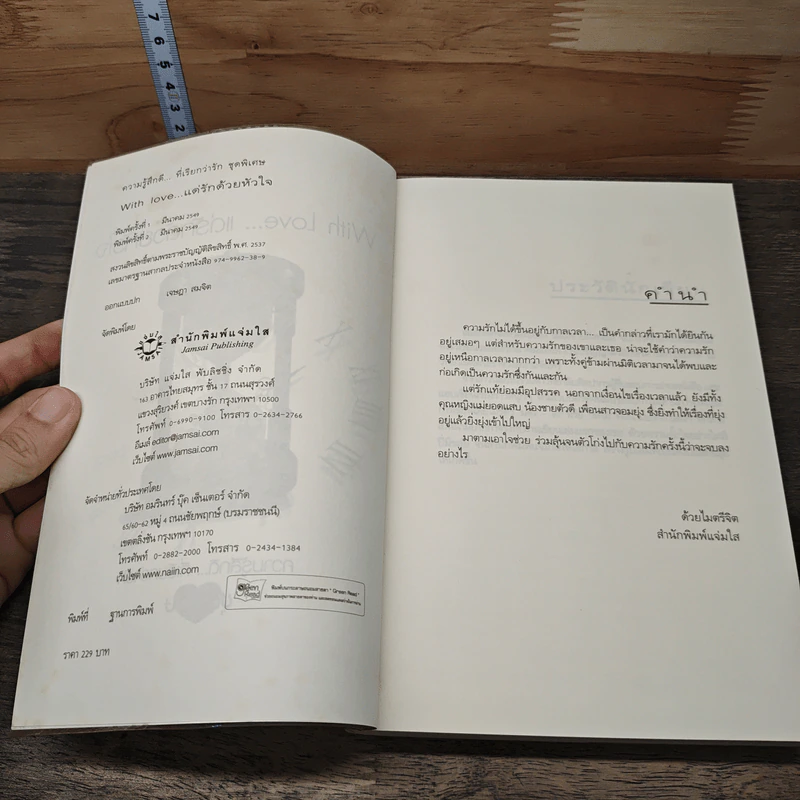 7
6
5
4
3
2
ความรู้สึกดี... ที่เรียกว่ารัก ชุดพิเศษ
With love...แด่รักด้วยหัวใจ
พิมพ์ครั้งที่ 1 มีนาคม 2549
พิมพ์ครั้งที่ 2 มีนาคม 2549
สงวนลิขสิทธิ์ตามพระราชบัญญัติลิขสิทธิ์ พ.ศ. 2537
เลขมาตรฐานสากลประจำหนังสือ 974-9962-38-9
ออกแบบปก เจษฎา สมจิต
จัดพิมพ์โดย
สำนักพิมพ์แจ่มใส
Jamsai Publishing
บริษัท แจ่มใส พับลิชชิ่ง จำกัด
163 อาคารไทยสมุทร ชั้น 17 ถนนสุรวงศ์
แขวงสุริยวงศ์ เขตบางรัก กรุงเทพฯ 10500
โทรศัพท์ 0-6990-9100 โทรสาร 0-2634-2766
อีเมล์ editor@jamsai.com
เว็บไซต์ www.jamsai.com
จัดจำหน่ายทั่วประเทศโดย
บริษัท อมรินทร์ บุ๊ค เซ็นเตอร์ จำกัด
65/60-62 หมู่ 4 ถนนชัยพฤกษ์ (บรมราชชนนี)
เขตตลิ่งชัน กรุงเทพฯ 10170
โทรศัพท์ 0-2882-2000 โทรสาร 0-2434-1384
เว็บไซต์ www.naiin.com
พิมพ์บนกระดาษถนอมสายตา "Green Read"
พิมพ์ที่ ฐานการพิมพ์
ราคา 229 บาท
คำนำ
ความรักไม่ได้ขึ้นอยู่กับกาลเวลา... เป็นคำกล่าวที่เรามักได้ยินกัน
อยู่เสมอๆ แต่สำหรับความรักของเขาและเธอ น่าจะใช้คำว่าความรัก
อยู่เหนือกาลเวลามากกว่า เพราะทั้งคู่ข้ามผ่านมิติเวลามาจนได้พบและ
ก่อเกิดเป็นความรักซึ่งกันและกัน
แต่รักแท้ย่อมมีอุปสรรค นอกจากเงื่อนไขเรื่องเวลาแล้ว ยังมีทั้ง
คุณหญิงแม่ยอดแสบ น้องชายตัวดี เพื่อนสาวจอมยุ่ง ซึ่งยิ่งทำให้เรื่องที่ยุ่ง
อยู่แล้วยิ่งยุ่งเข้าไปใหญ่
มาตามเอาใจช่วย ร่วมลุ้นจนตัวโก่งไปกับความรักครั้งนี้ว่าจะจบลง
อย่างไร
ด้วยไมตรีจิต
สำนักพิมพ์แจ่มใส